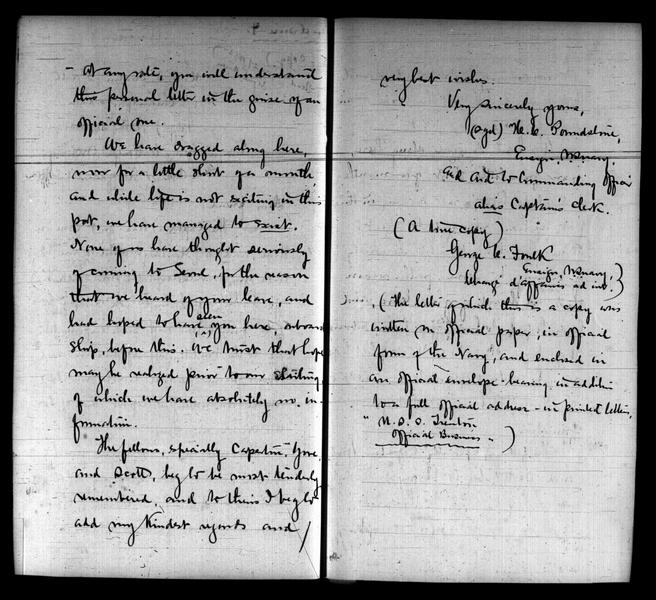 - At any rate, you will understand
this personal letter in the guise of an
official one.
We have dragged along here,
now for a little short of a month,
and while life is not exciting in this
port, we have managed to exist.
None of us have thought seriously
of coming to Seoul, for the reason
that we heard of your leave, and
had hoped to have seen you here, onboard
ship, before this. We trust that hope
may be realized prior to our
of which we have absolutely no in-
formation.
The fellows, specially Capehart,
and Scott, beg to be most tenderly
remembered, and to theirs I beg to
add my kindest regards and
very best wishes.
Very sincerely yours,
(sgd) H. C. Poundstone,
Ensign, U.S. Navy.
and Aid to Commanding Officer
alias Captain's Clerk.
(A true copy)
George C. Foulk
Ensign, U.S. Navy,
Chargé d'affaires ad int.)
(The letter of which this is a copy was
written on official paper, in official
form of the Navy, and enclosed in
an official envelope bearing in addition
to a full official address - in printed letters,
"U.S.S. Trenton
Official Business".)